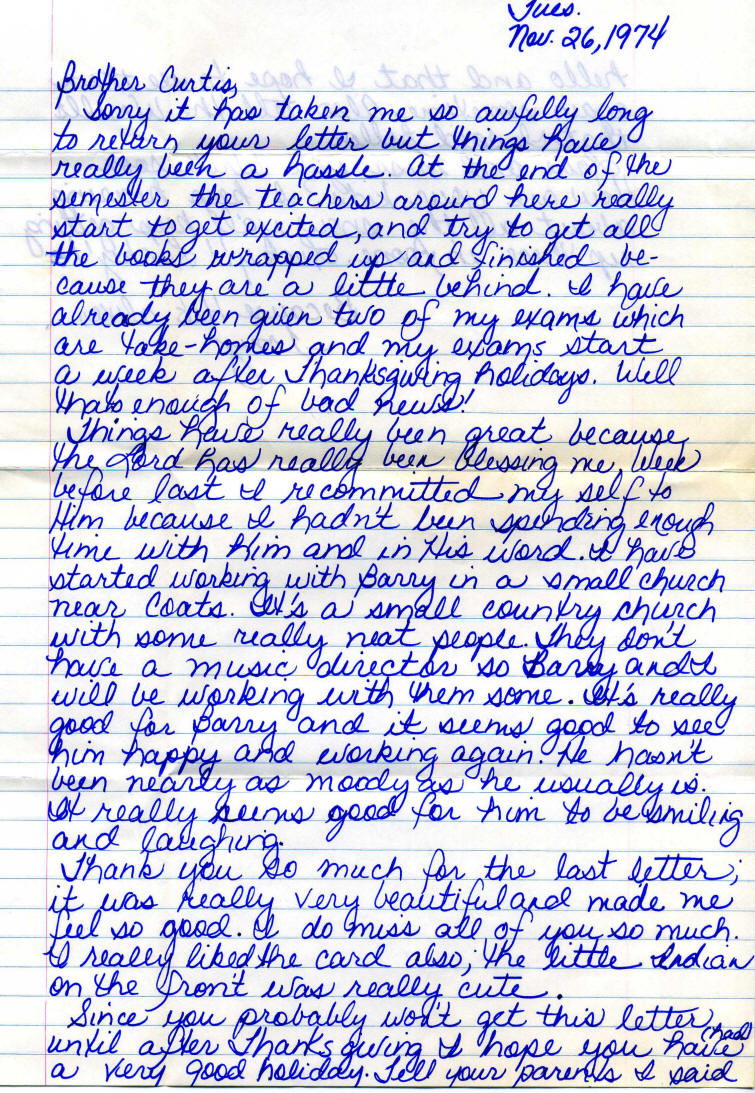 Tues.
Nov. 26, 1974
Brother Curtis,
Sorry it has taken me so awfully long
to return your letter but things have
really been a hassle. At the end of the
semester the teachers around here really
start to get excited, and try to get all
the books wrapped up and finished be-
cause they are a little behind. I have
already been given two of my exams which
are take-homes and my exams start
a week after Thanksgiving holidays. Well
thats enough of bad news!
Things have really been great because
the Lord has really been blessing me. Week
before last I recommitted my self to
Him because I hadn't been spending enough
time with Him and in His Word. I have
started working with Barry in a small church
near Coats. It's a small country church
with some really neat people. They don't
have a music director so Barry and I
will be working with them some. It's really
good for Barry and it seems good to see
him happy and working again. He hasn't
been nearly as moody as he usually is.
It really seems good for him to be smiling
and laughing.
Thank you so much for the last letter;
it was really very beautiful and made me
feel so good. I do miss all of you so much.
I really liked the card also; the little Indian
on the front was really cute.
Since you probably won't get this letter
until after Thanksgiving I hope you have (had)
a very good holiday. Tell your parents I said